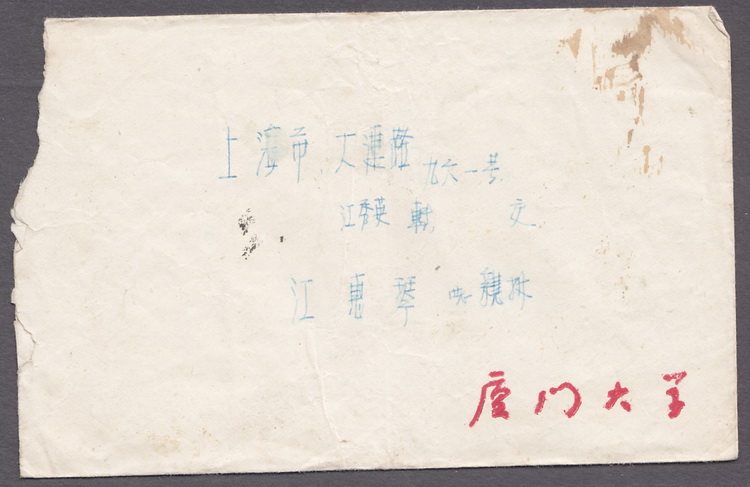 上海市 大連路 九六一号
江秀英 轉 交
江惠琴 親
厦门大学